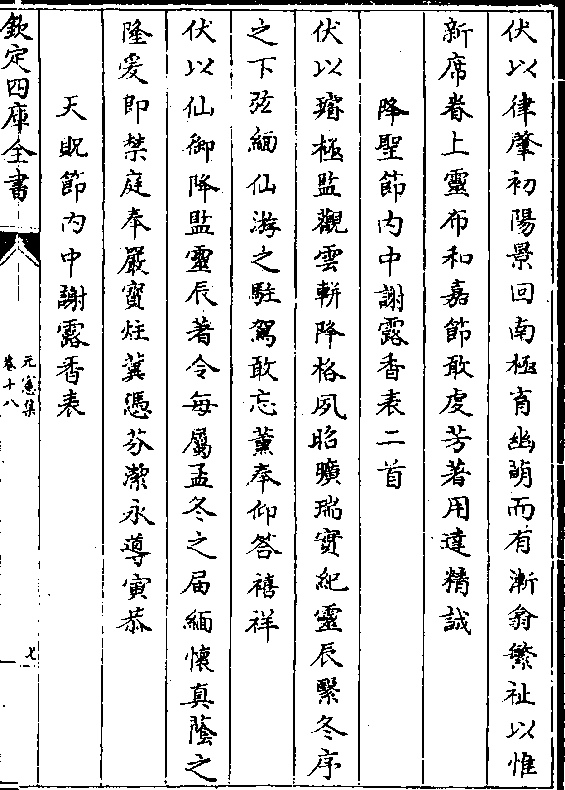 伏以律肇初陽景回南極育幽萌而有漸翕繁祉以惟
新席眷上靈布和嘉節敢虔芳著用達精誠
降聖節内中謝露香表二首
伏以璿極監觀雲軿降格夙昭曠瑞實紀靈辰繄冬序
之下弦緬仙游之駐駕敢忘薰奉仰答禧祥
伏以仙御降監靈辰著令每屬孟冬之届緬懷真蔭之
隆爰即禁庭奉嚴寳炷冀憑芬潔永導寅恭
天貺節内中謝露香表
欽定四庫全書
元憲集
卷十八
七